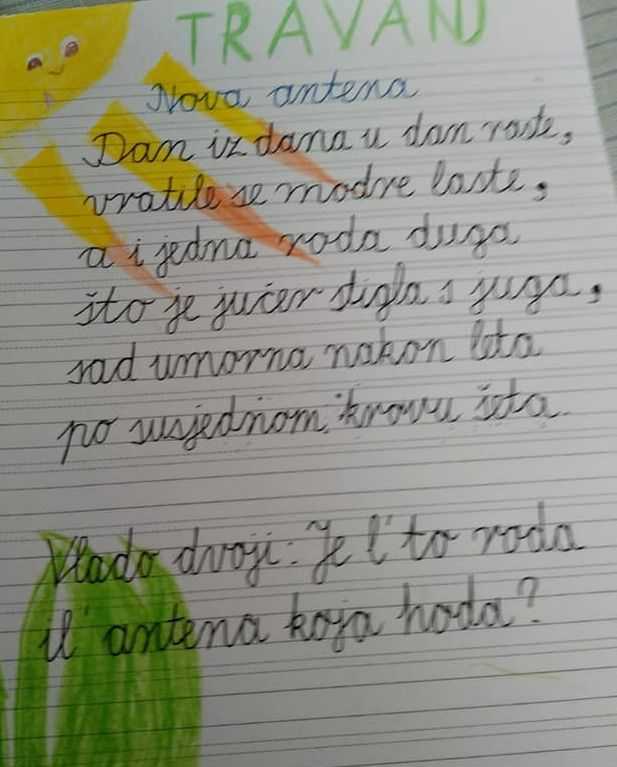 TRAVANJ
Nova antena
Dan iz dana u dan raste,
vratile se modre laste,
a i jedna roda duga
što je jučer stigla s juga,
sad umorna nakon leta
po susjednom krovu šeta.
Vlado dvoji: Je l' to roda
il' antena koja hoda?